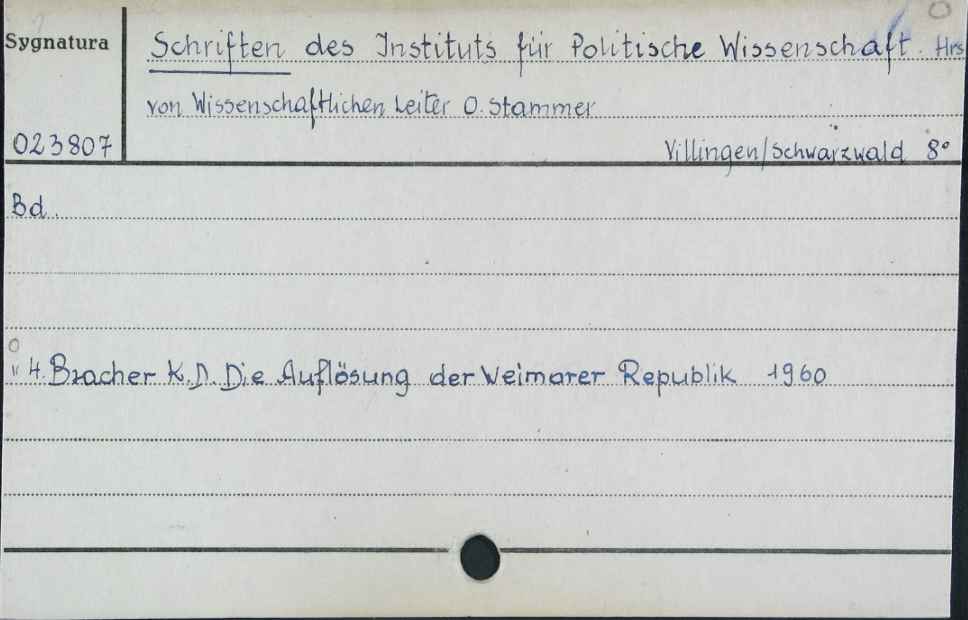 Sygnatura
Schriften des Instituts für Politische Wissenschaft. Hrs
von Wissenschaftlichen Leiter O. Stammer
023807
Villingen/Schwarzwald 8°
Bd.
" 4. Bracher K.D. Die Auflösung der Weimarer Republik 1960